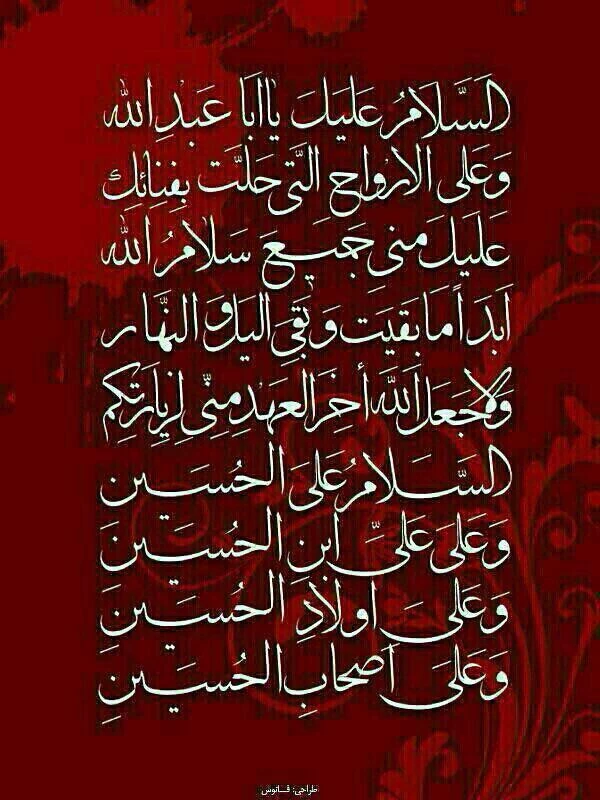 السَّلَامُ عَلَيْكَ يَا اَبَا عَبْدِ اللّٰه
وَعَلَى الاَرْواحِ الَّتي حَلَّت بِفِنائِك
عَلَيكَ مِني جَميعَ سَلامُ اللّٰه
اَبَداً مَا بَقيَت وَ بَقِيَ اليل وَ النَّهار
وَلا جَعَل اللّٰهُ أخِرَ العَهدِ مِنّي لِزِيارَتِكُم
السَّلامُ عَلَى الحُسَين
وَ عَلَى عَليِّ ابنِ الحُسَين
وَ عَلَى اولادِ الحُسَينِ
وَ عَلَى اَصحابِ الحُسَينِ
طراحی: فانوس